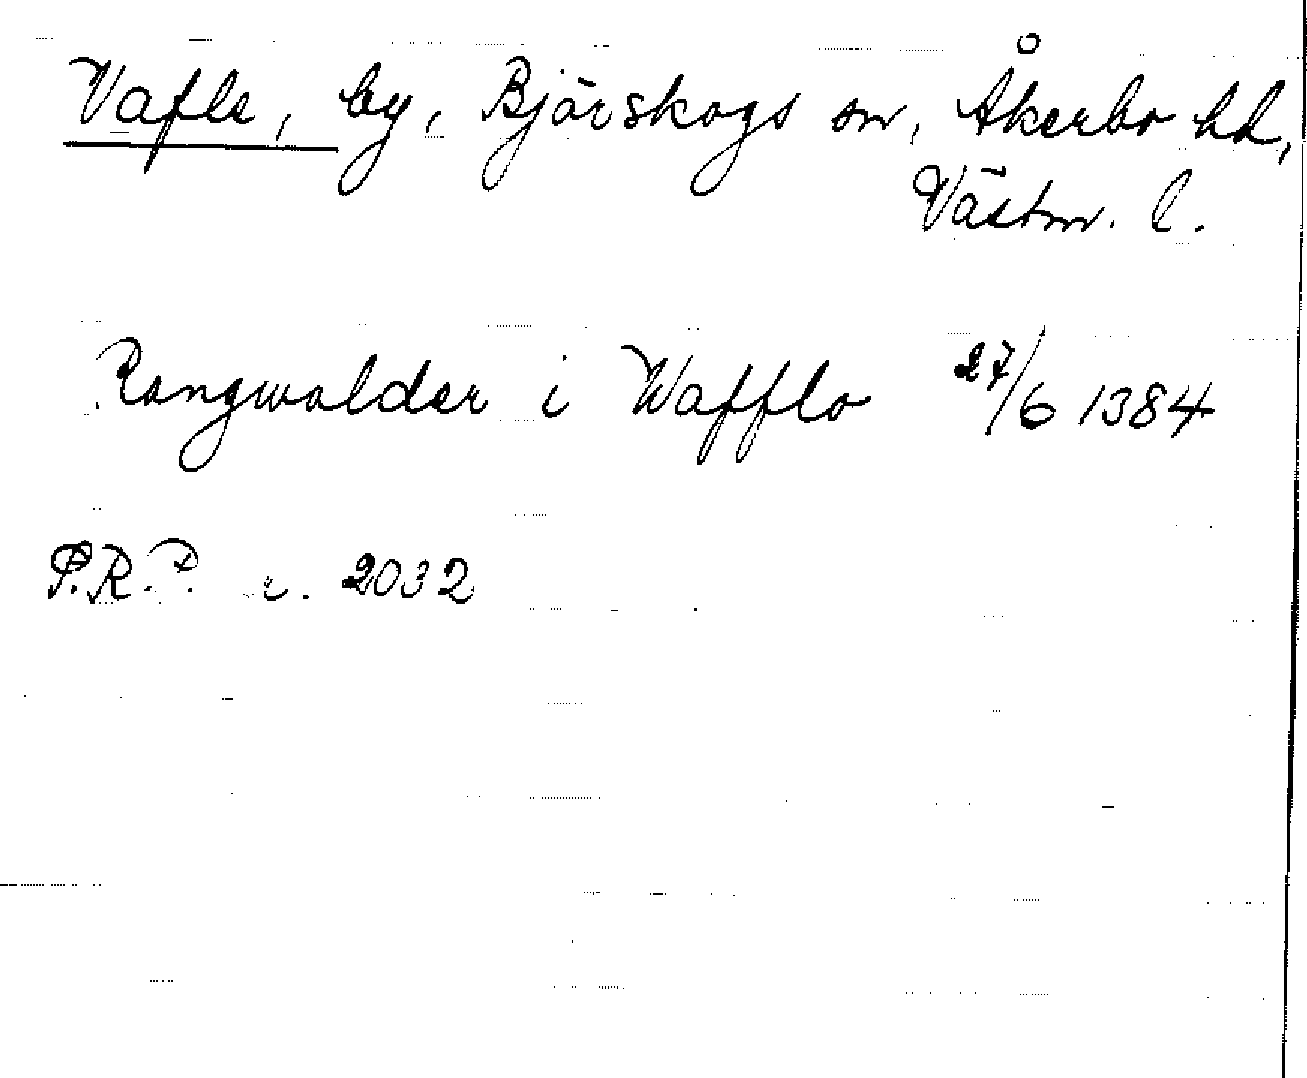 Vafle, by, Bjärskogs sn, Åkerbo hd,
Västm. l.
Rangwalder i Wafflo 27/6 1384
S.R.P. n. 2032